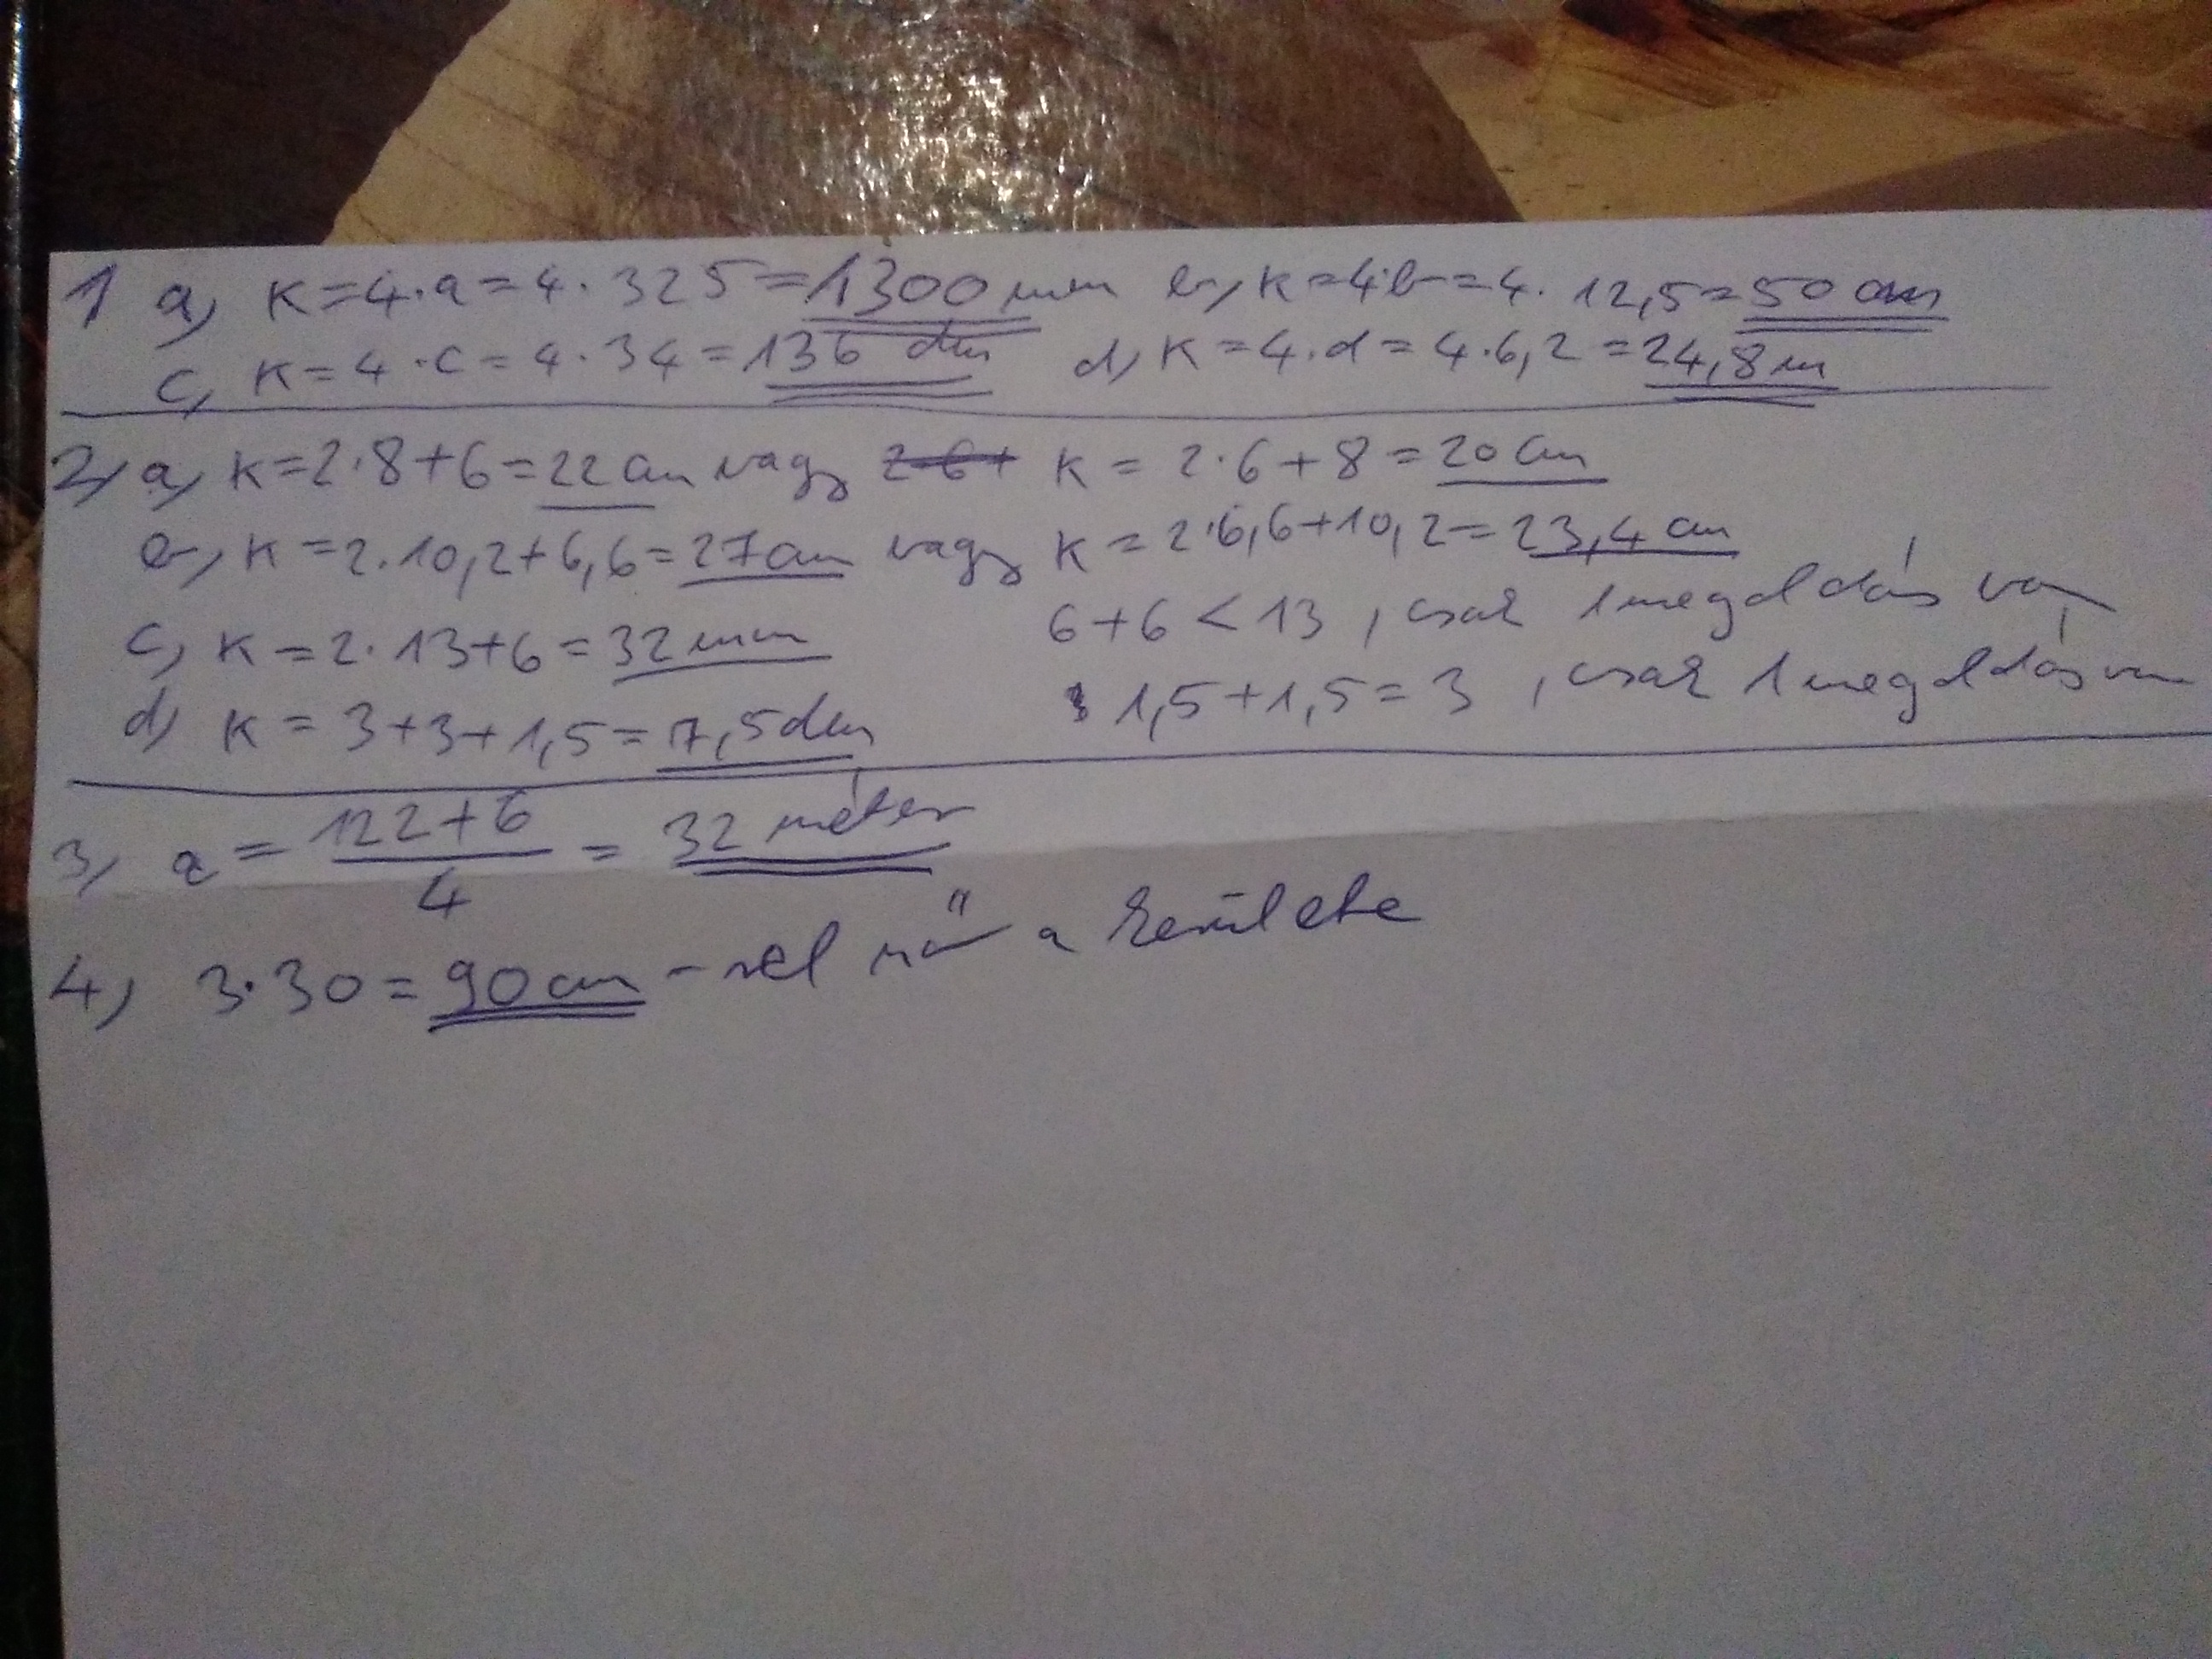 1 a, K=4·a=4·325=1300 mm b, K=4·b=4·12,5=50 cm
c, K=4·c=4·34=136 dm d, K=4·d=4·6,2=24,8 m
2, a, K=2·8+6=22 cm vagy 2·6+ K=2·6+8=20 cm
b, K=2·10,2+6,6=27 cm vagy K=2·6,6+10,2=23,4 cm
c, K=2·13+6=32 mm 6+6<13, csak 1 megoldás van
d, K=3+3+1,5=7,5 dm 1,5+1,5=3, csak 1 megoldás van
3, a=(122+6)/4=32 méter
4, 3·30=90 cm-rel nő a kerülete